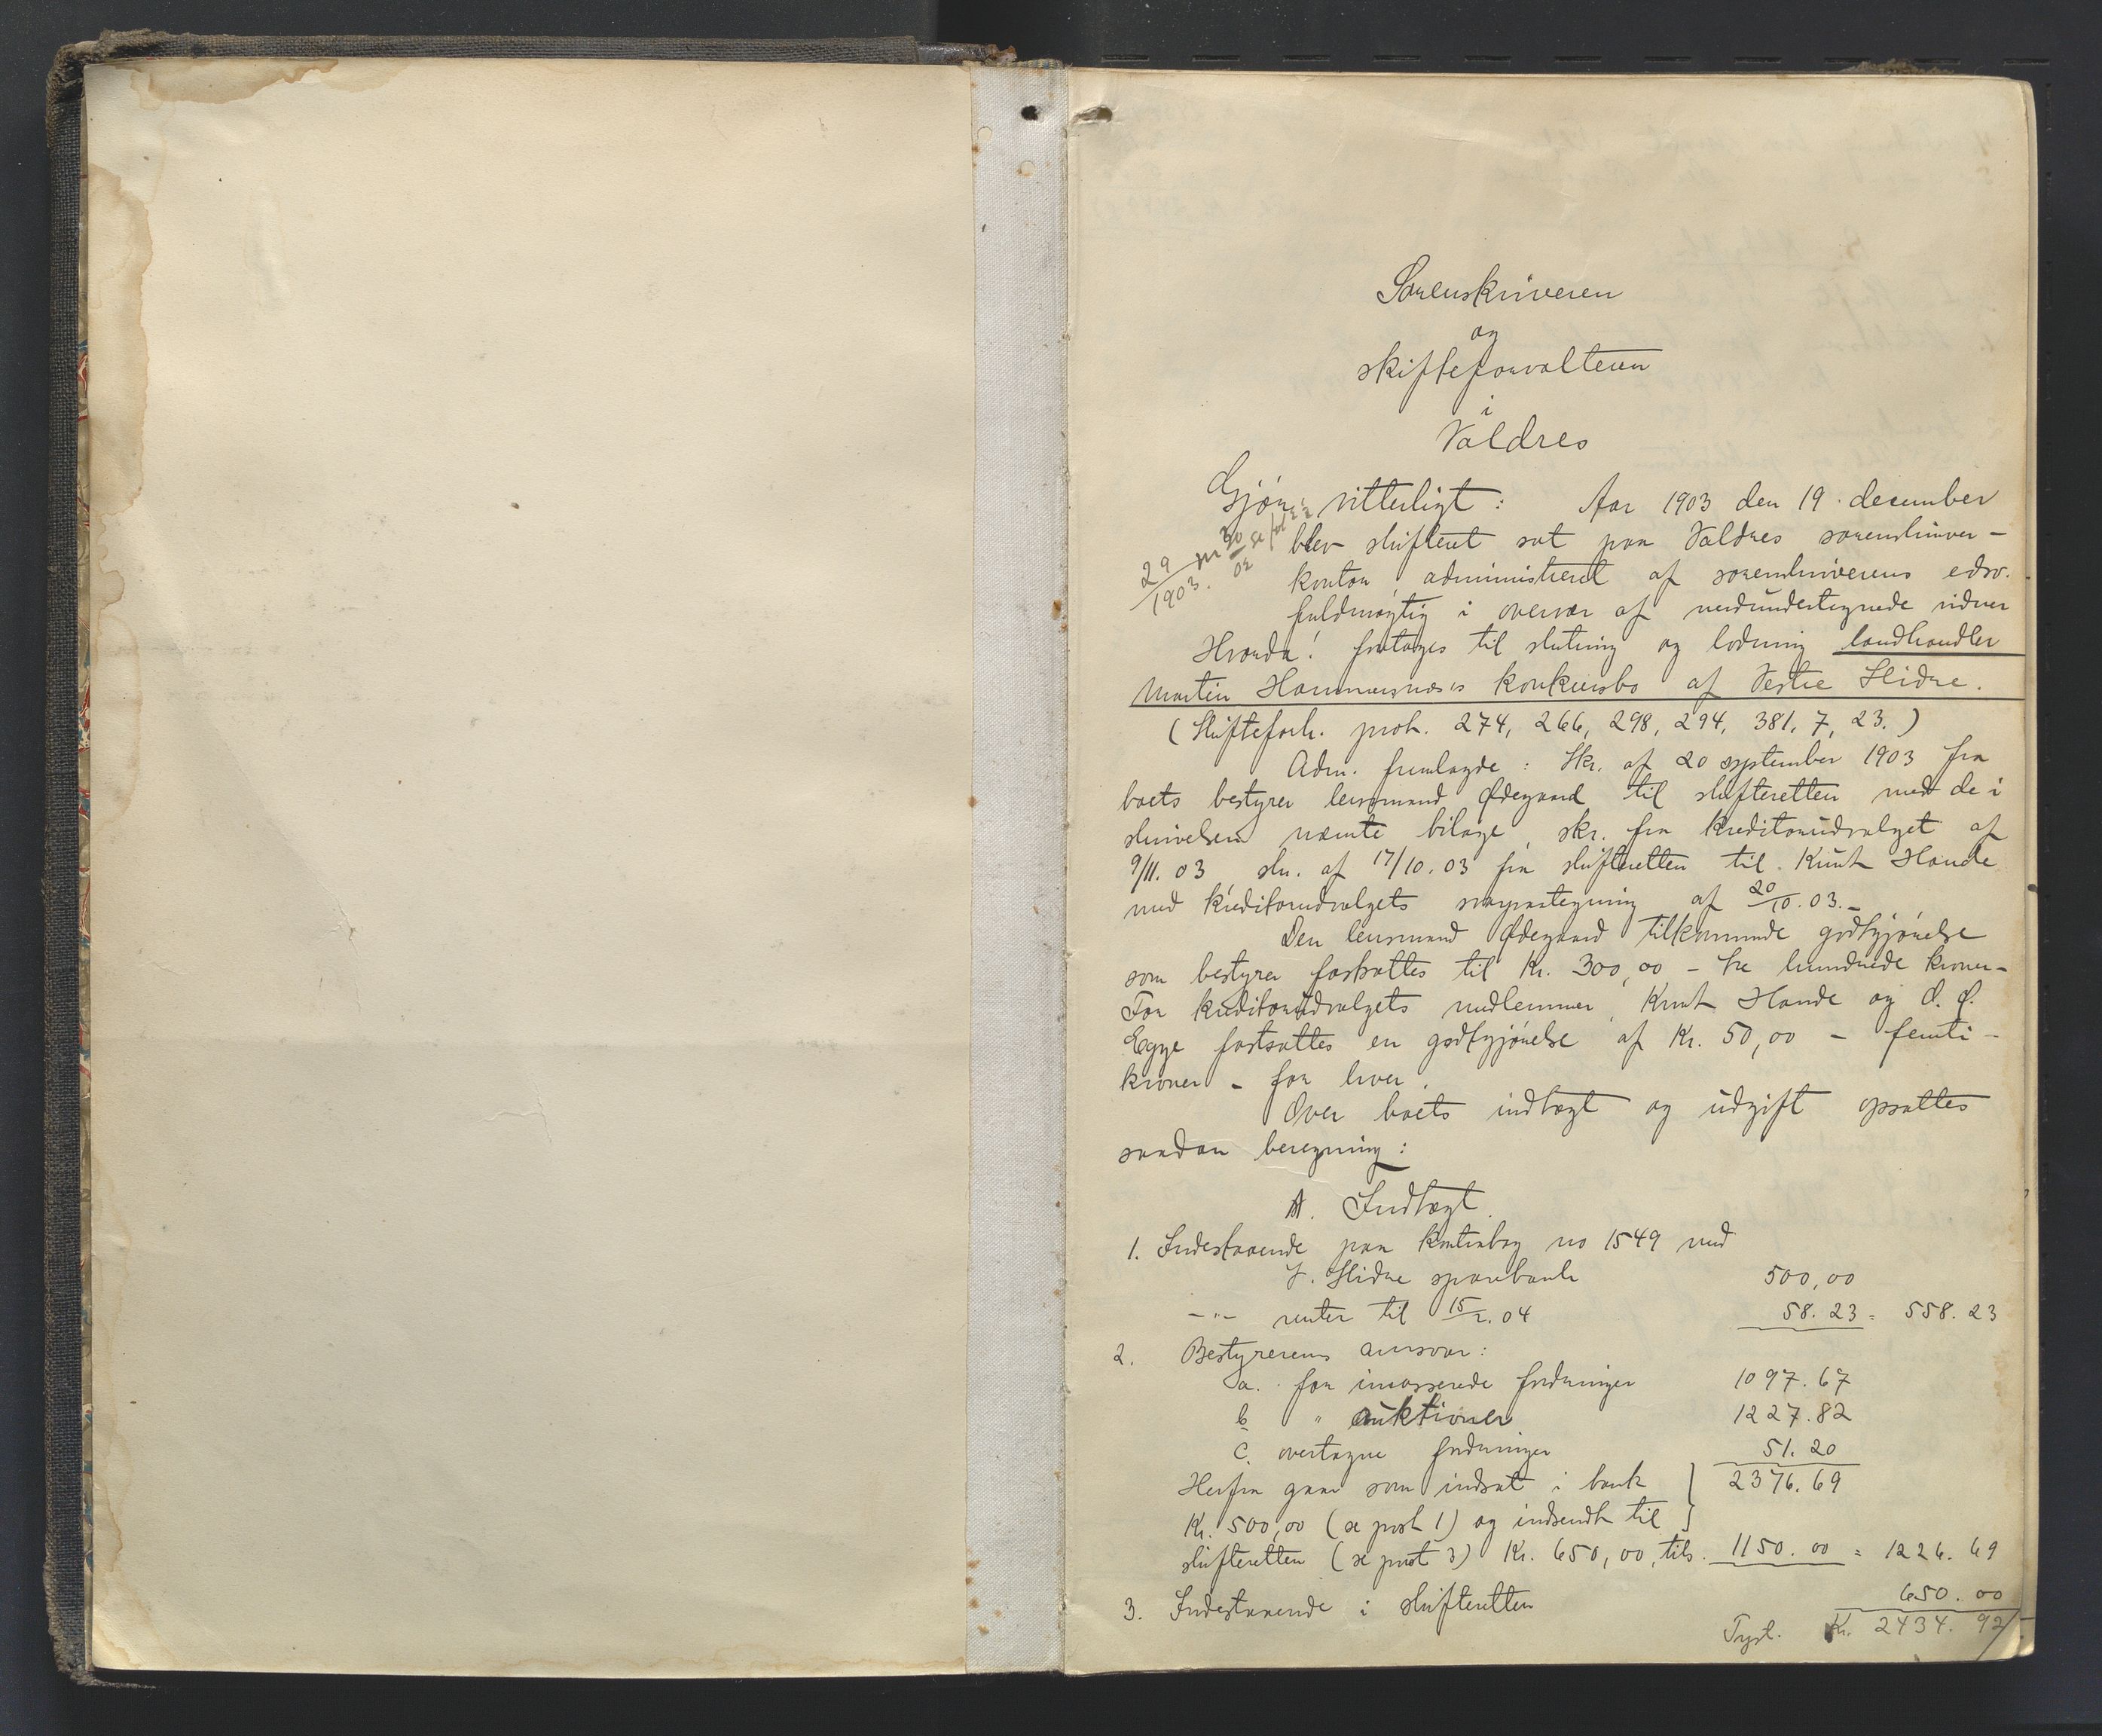 Sorenskriveren
og
skifteforvalteren
i
Valdres
Gjør vitterligt: Aar 1903 den 19. december
blev skifteret sat paa Valdres sorenskriver-
kontor administreret af sorenskriverens edsv.
fuldmægtig i overvær af nedundertegnede vidner
29/1903.
Hvorda! foretages til slutning og lodning landhandler
Martin Hammersnæs's konkursbo af Vestre Slidre.
(Skifteforh. prot. 274, 266, 298, 294, 381, 7, 23.)
Adm. fremlagde: Skr. af 20 september 1903 fra
boets bestyrer lensmand Ødegaard til skifteretten med de i
skrivelsen nævnte bilage, skr. fra kreditorudvalget af
9/11. 03 skr. af 17/10. 03 fra skifteretten til Knut Hande
med kreditorudvalgets svarpaategning af 20/10. 03.-
Den lensmand Ødegaard tilkommende godtgjørelse
som bestyrer fastsattes til Kr. 300,00 - tre hundrede kroner-
For kreditorudvalgets medlemmer, Knut Hande og O. Ø.
Egge fastsattes en godtgjørelse af Kr. 50,00 - femti-
kroner - for hver.
Over boets indtægt og udgift opsattes
saadan beregning:
A. Indtægt.
1. Indestaaende paa kontrabog no 1549 med
V. Slidre sparebank 500,00
-"- renter til 15/2. 04 58. 23 = 558. 23
2. Bestyrerens ansvar:
a. for incasserede fordringer 1097. 67
b " auktioner 1227. 82
c. overtagne fordringer 51. 20
Herfra gaar som indsat i bank } 2376. 69
Kr. 500,00 (se post 1) og indsendt til
skifteretten (se post 3) Kr. 650,00, tils. 1150. 00 = 1226. 69
3. Indestaaende i skifteretten 650. 00
Kr. 2434. 92